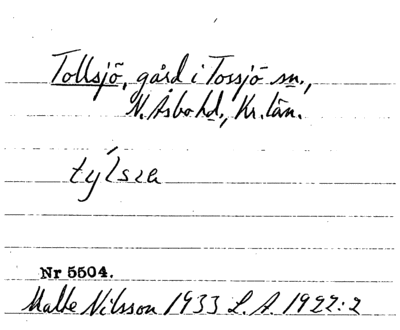 Tollsjö, gård i Tossjö sn.,
N. Åsbo hd., Kr. län.
týlsza
Nr 5504.
Malte Nilsson 1933 L. A. 1922:2